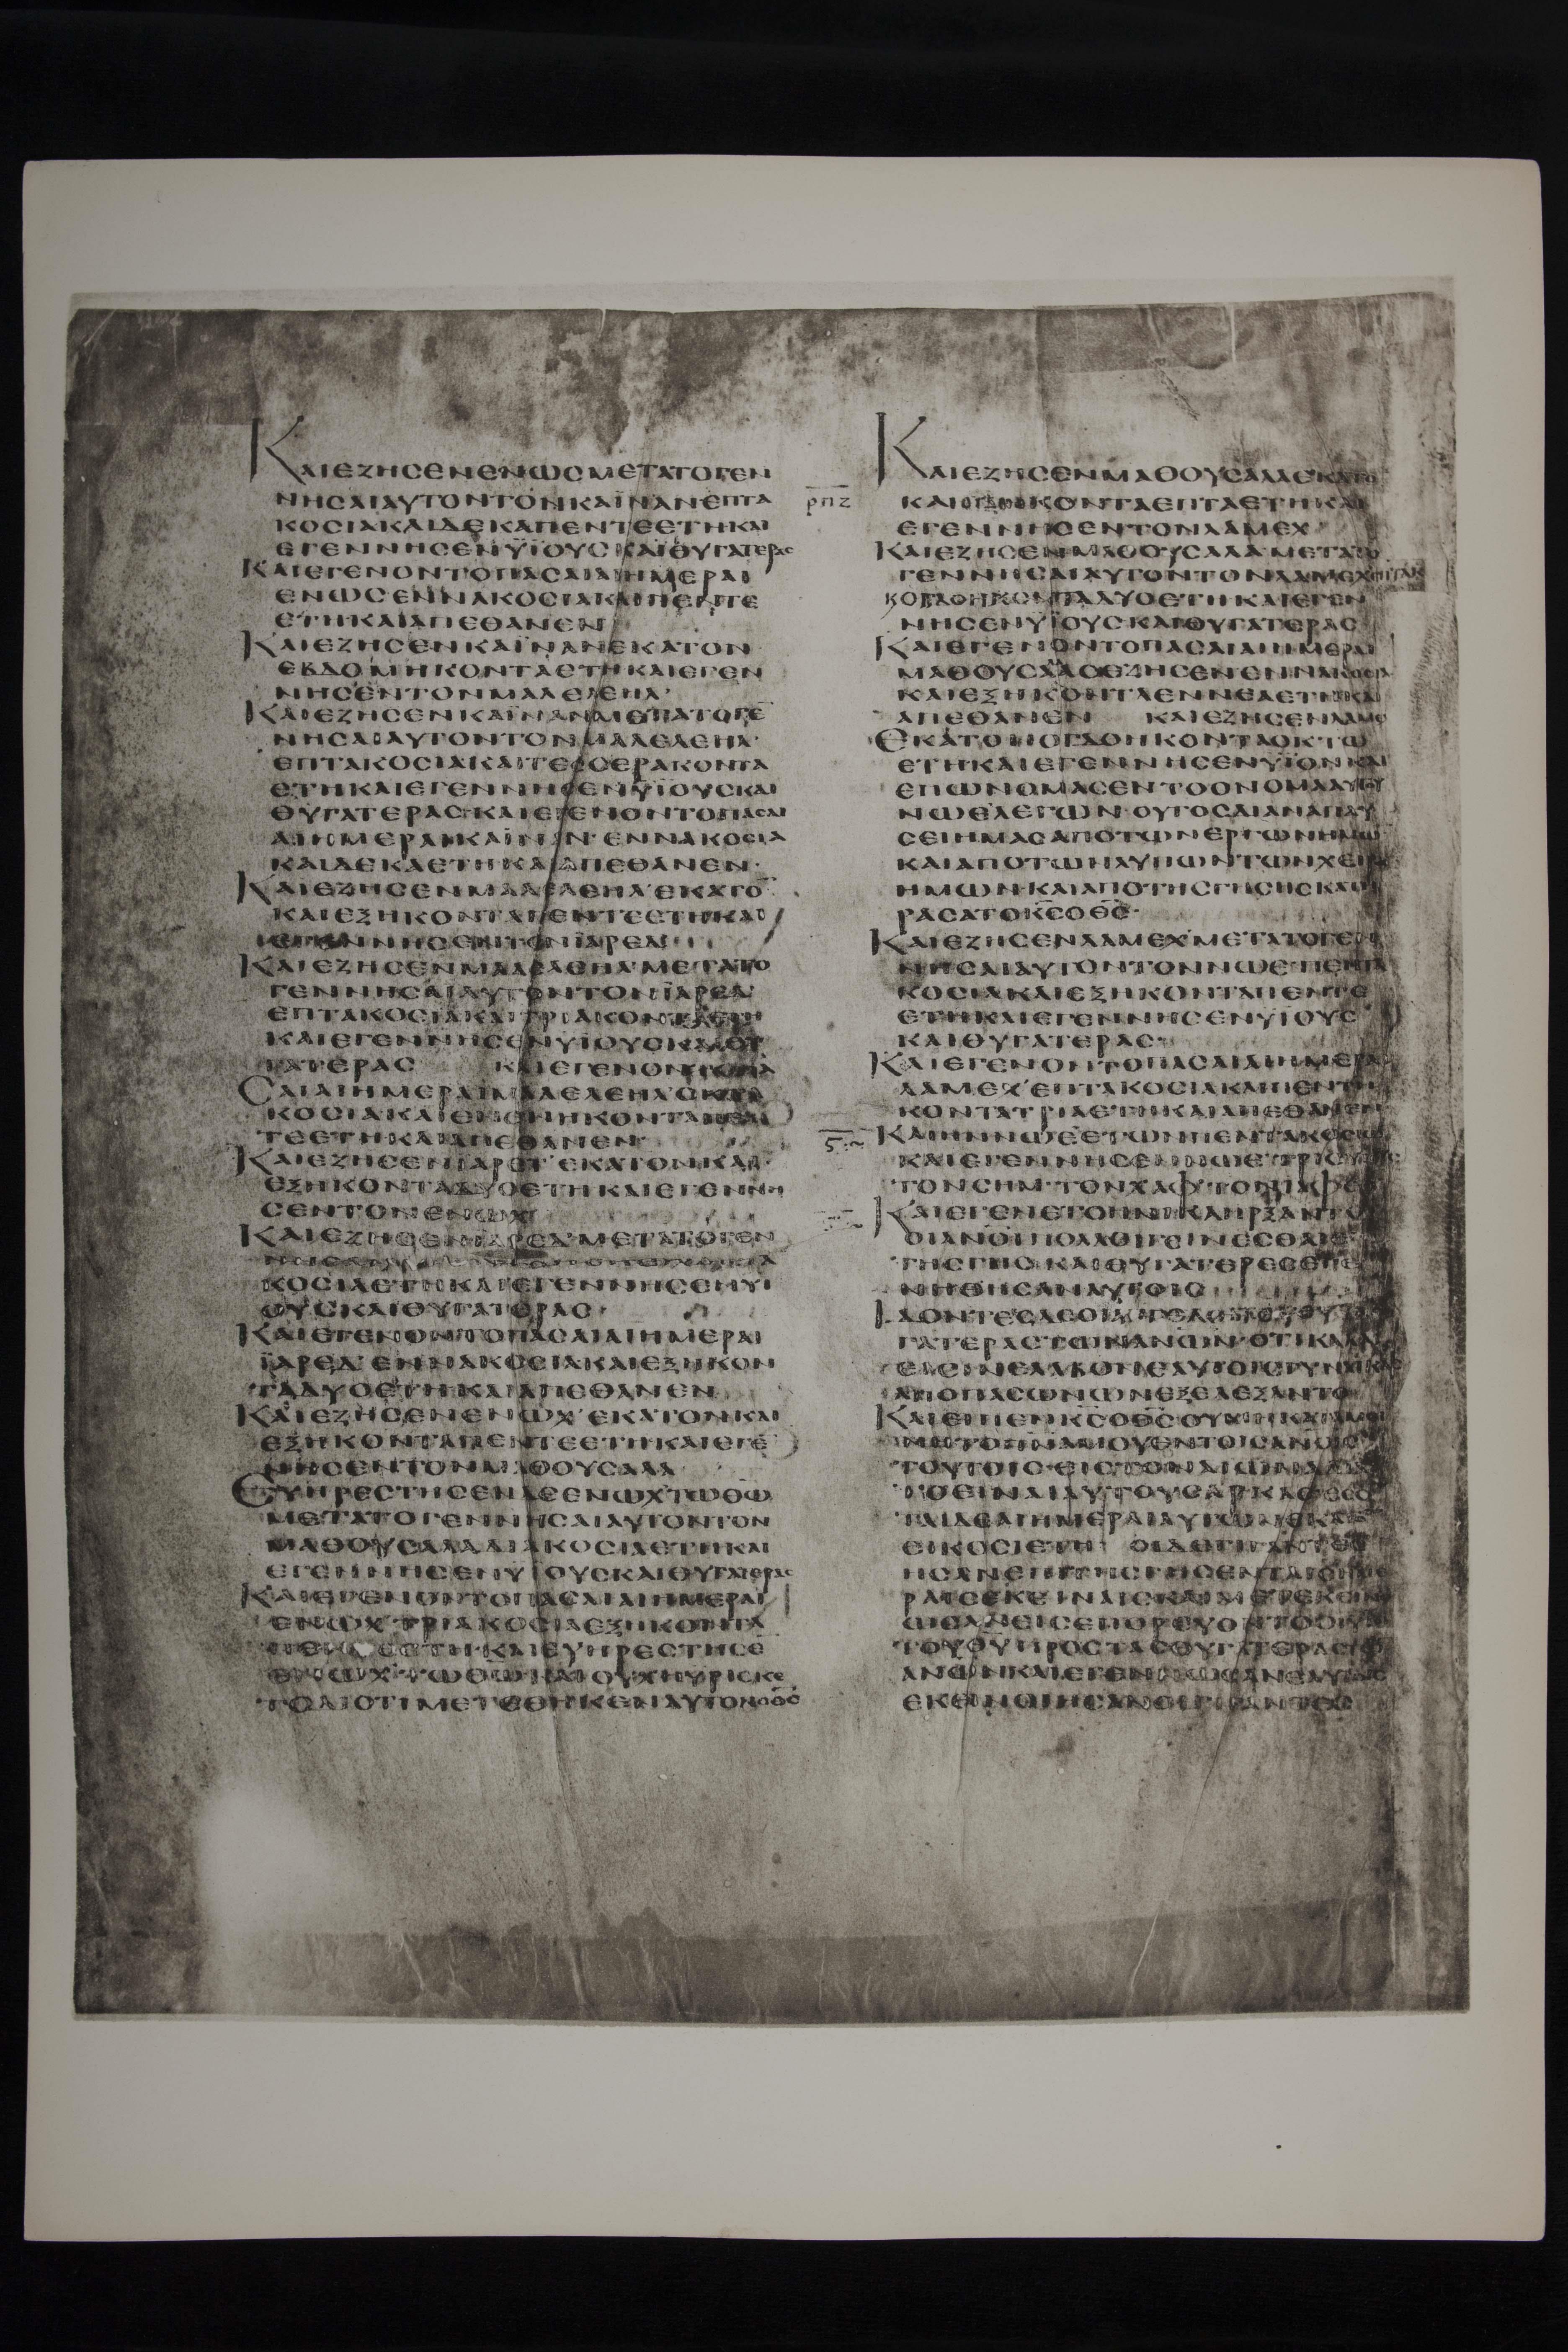 ΚΑΙΕΖΗCΕΝΕΝΩCΜΕΤΑΤΟΓΕΝ
ΝΗCΑΙΑΥΤΟΝΤΟΝΚΑΪΝΑΝΕΠΤΑ
ΚΟCΙΑΚΑΙΔΕΚΑΠΕΝΤΕΕΤΗΚΑΙ
ΕΓΕΝΝΗCΕΝΫΪΟΥCΚΑΙΘΥΓΑΤΕΡΑC
ΚΑΙΕΓΕΝΟΝΤΟΠΑCΑΙΑΙΗΜΕΡΑΙ
ΕΝΩCΕΝΝΑΚΟCΙΑΚΑΙΠΕΝΤΕ
ΕΤΗΚΑΙΑΠΕΘΑΝΕΝ
ΚΑΙΕΖΗCΕΝΚΑΪΝΑΝΕΚΑΤΟΝ
ΕΒΔΟΜΗΚΟΝΤΑΕΤΗΚΑΙΕΓΕΝ
ΝΗCΕΝΤΟΝΜΑΛΕΛΕΗΛ·
ΚΑΙΕΖΗCΕΝΚΑΪΝΑΝΜΕΤΑΤΟΓΕ̅
ΝΗCΑΙΑΥΤΟΝΤΟΝΜΑΛΕΛΕΗΛ·
ΕΠΤΑΚΟCΙΑΚΑΙΤΕCCΕΡΑΚΟΝΤΑ
ΕΤΗΚΑΙΕΓΕΝΝΗCΕΝΫΪΟΥCΚΑΙ
ΘΥΓΑΤΕΡΑC·ΚΑΙΕΓΕΝΟΝΤΟΠΑCΑΙ
ΑΙΗΜΕΡΑΙΚΑΪΝΑΝ·ΕΝΝΑΚΟCΙΑ
ΚΑΙΔΕΚΑΕΤΗΚΑΙΑΠΕΘΑΝΕΝ·
ΚΑΙΕΖΗCΕΝΜΑΛΕΛΕΗΛ·ΕΚΑΤΟ̅
ΚΑΙΕΞΗΚΟΝΤΑΠΕΝΤΕΕΤΗΚΑΙ
ΕΓΕΝΝΗCΕΝΤΟΝΪΑΡΕΔ
ΚΑΙΕΖΗCΕΝΜΑΛΕΛΕΗΛ·ΜΕΤΑΤΟ
ΓΕΝΝΗCΑΙΑΥΤΟΝΤΟΝΪΑΡΕΔ·
ΕΠΤΑΚΟCΙΑΚΑΙΤΡΙΑΚΟΝΤΑΕΤΗ
ΚΑΙΕΓΕΝΝΗCΕΝΥΪΟΥCΚΑΙΘΥ
ΓΑΤΕΡΑC ΚΑΙΕΓΕΝΟΝΤΟΠΑ
CΑΙΑΙΗΜΕΡΑΙΜΑΛΕΛΕΗΛ·ΟΚΤΑ
ΚΟCΙΑΚΑΙΕΝΕΝΗΚΟΝΤΑΠΕΝ
ΤΕΕΤΗΚΑΙΑΠΕΘΑΝΕΝ
ΚΑΙΕΖΗCΕΝΪΑΡΕΔ·ΕΚΑΤΟΝΚΑΙ
ΕΞΗΚΟΝΤΑΔΥΟΕΤΗΚΑΙΕΓΕΝΝΗ
CΕΝΤΟΝΕΝΩΧ
ΚΑΙΕΖΗCΕΝΪΑΡΕΔ·ΜΕΤΑΤΟΓΕΝ
ΚΟCΙΑΕΤΗΚΑΙΕΓΕΝΝΗCΕΝΥΙ
ΟΥCΚΑΙΘΥΓΑΤΕΡΑC·
ΚΑΙΕΓΕΝΟΝΤΟΠΑCΑΙΑΙΗΜΕΡΑΙ
ΪΑΡΕΔ·ΕΝΝΑΚΟCΙΑΚΑΙΕΞΗΚΟΝ
ΤΑΔΥΟΕΤΗΚΑΙΑΠΕΘΑΝΕΝ
ΚΑΙΕΖΗCΕΝΕΝΩΧ·ΕΚΑΤΟΝΚΑΙ
ΕΞΗΚΟΝΤΑΠΕΝΤΕΕΤΗΚΑΙΕΓΕ̅
ΝΗCΕΝΤΟΝΜΑΘΟΥCΑΛΑ
ΕΥΗΡΕCΤΗCΕΝΔΕΕΝΩΧΤΩΘ̅Ω̅
ΜΕΤΑΤΟΓΕΝΝΗCΑΙΑΥΤΟΝΤΟΝ
ΜΑΘΟΥCΑΛΑΔΙΑΚΟCΙΑΕΤΗΚΑΙ
ΕΓΕΝΝΗCΕΝΥΪΟΥCΚΑΙΘΥΓΑΤΕΡΑC
ΚΑΙΕΓΕΝΟΝΤΟΠΑCΑΙΑΙΗΜΕΡΑΙ
ΕΝΩΧ·ΤΡΙΑΚΟCΙΑΕΞΗΚΟΝΤΑ
ΠΕΝΤΕΕΤΗΚΑΙΕΥΗΡΕCΤΗCΕ̅
ΕΝΩΧ·ΤΩΘ̅Ω̅ΚΑΙΟΥΧΗΥΡΙCΚΕ
ΤΟΔΙΟΤΙΜΕΤΕΘΗΚΕΝΑΥΤΟΝΟΘ̅C̅
ρπζ
ΚΑΙΕΖΗCΕΝΜΑΘΟΥCΑΛΑΕΚΑΤΟ̅
ΚΑΙΟΓΔΟΗΚΟΝΤΑΕΠΤΑΕΤΗΚΑΙ
ΕΓΕΝΝΗCΕΝΤΟΝΛΑΜΕΧ·
ΚΑΙΕΖΗCΕΝΜΑΘΟΥCΑΛΑΜΕΤΑΤΟ
ΓΕΝΝΗCΑΙΑΥΤΟΝΤΟΝΛΑΜΕΧΕΠΤΑΚ
ΝΗCΕΝΥΪΟΥCΚΑΙΘΥΓΑΤΕΡΑC
ΚΑΙΕΓΕΝΟΝΤΟΠΑCΑΙΑΙΗΜΕΡΑΙ
ΜΑΘΟΥCΑΛΑCΕΖΗCΕΝΕΝΝΑΚΟCΙΑ
ΚΑΙΕΞΗΚΟΝΤΑΕΝΝΕΑΕΤΗΚΑΙ
ΑΠΕΘΑΝΕΝ ΚΑΙΕΖΗCΕΝΛΑΜΕΧ
ΕΚΑΤΟΝΟΓΔΟΗΚΟΝΤΑΟΚΤΩ
ΕΤΗΚΑΙΕΓΕΝΝΗCΕΝΥΪΟΝΚΑΙ
ΕΠΩΝΟΜΑCΕΝΤΟΟΝΟΜΑΑΥΤΟΥ
ΝΩΕ·ΛΕΓΩΝ·ΟΥΤΟCΔΙΑΝΑΠΑΥ
CΕΙΗΜΑCΑΠΟΤΩΝΕΡΓΩΝΗΜΩ̅
ΚΑΙΑΠΟΤΩΝΛΥΠΩΝΤΩΝΧΕΙΡΩ̅
ΗΜΩΝΚΑΙΑΠΟΤΗCΓΗCΗCΚΑΤΗ
ΡΑCΑΤΟΚ̅C̅ΟΘ̅C̅·
ΚΑΙΕΖΗCΕΝΛΑΜΕΧ·ΜΕΤΑΤΟΓΕΝ
ΝΗCΑΙΑΥΤΟΝΤΟΝΝΩΕ·ΠΕΝΤΑ
ΚΟCΙΑΚΑΙΕΞΗΚΟΝΤΑΠΕΝΤΕ
ΕΤΗΚΑΙΕΓΕΝΝΗCΕΝΥΙΟΥC
ΚΑΙΘΥΓΑΤΕΡΑC·
ΚΑΙΕΓΕΝΟΝΤΟΠΑCΑΙΑΙΗΜΕΡΑΙ
ΛΑΜΕΧ·ΕΠΤΑΚΟCΙΑΚΑΙΠΕΝΤΗ
ΚΟΝΤΑΤΡΙΑΕΤΗΚΑΙΑΠΕΘΑΝΕΝ
ΚΑΙΗΝΝΩΕ·ΕΤΩΝΠΕΝΤΑΚΟCΙΩ̅
ΚΑΙΕΓΕΝΝΗCΕΝΝΩΕ·ΤΡΙCΥΙΟΥC
ΤΟΝCΗΜ·ΤΟΝΧΑΜ·ΤΟΝΪΑΦΕΘ
ΚΑΙΕΓΕΝΕΤΟΗΝΙΚΑΗΡΞΑΝΤΟ
ΟΙΑΝΟΙΠΟΛΛΟΙΓΙΝΕCΘΑΙΕΠΙ
ΤΗCΓΗCΚΑΙΘΥΓΑΤΕΡΕCΕΓΕ
ΝΗΘΗCΑΝΑΥΤΟΙC
ΓΑΤΕΡΑCΤΩΝΑΝΩΝ·ΟΤΙΚΑΛΑΙ
ΕΙCΙΝΕΛΑΒΟΝΕΑΥΤΟΙCΓΥΝΑΙΚΑC
ΑΠΟΠΑCΩΝΩΝΕΞΕΛΕΞΑΝΤΟ
ΚΑΙΕΙΠΕΝΚ̅C̅ΟΘ̅C̅ΟΥΜΗΚΑΤΑΜΕΙ
ΝΗΤΟΠΝΑΜΟΥΕΝΤΟΙCΑΝΟΙC
ΤΟΥΤΟΙC·ΕΙCΤΟΝΑΙΩΝΑΔΙΑ
ΤΟΕΙΝΑΙΑΥΤΟΥCCΑΡΚΑCΕCΟ̅
ΤΑΙΔΕΑΙΗΜΕΡΑΙΑΥΤΩΝΕΚΑΤΟ̅
ΕΙΚΟCΙΕΤΗ ΟΙΔΕΓΙΓΑΝΤΕC
ΗCΑΝΕΠΙΤΗCΓΗCΕΝΤΑΙCΗΜΕ
ΡΑΙCΕΚΕΙΝΑΙCΚΑΙΜΕΤΕΚΕΙΝΟ
ΩCΑΝΕΙCΕΠΟΡΕΥΟΝΤΟΟΙΥΙΟΙ
ΤΟΥΘ̅Υ̅ΠΡΟCΤΑCΘΥΓΑΤΕΡΑCΤΩ̅